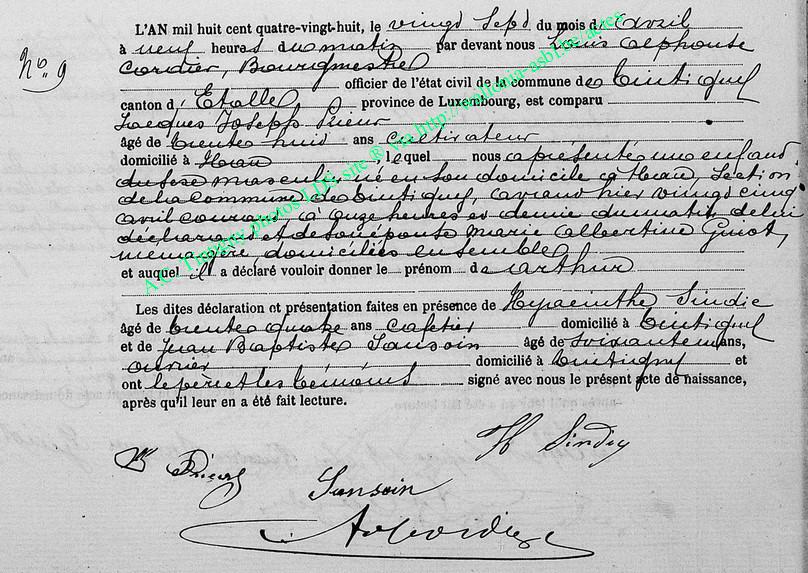 L'AN mil huit cent quatre-vingt-huit, le vingt Sept du mois d'avril
à neuf heures du matin par devant nous Louis Alphonse
No. 9
Cordier, Bourgmestre
officier de l'état civil de la commune de Tintigny
canton d'Etalle province de Luxembourg, est comparu
Jacques Joseph
âgé de trente huit ans cultivateur
domicilié à Han, lequel nous a présenté un enfant
du sexe masculin né en son domicile à Han, Section
de la commune de Tintigny, avant hier vingt cinq
avril courant à onze heures et demie du matin, de lui
déclarant et de son épouse Marie Albertine Guiot,
ménagère, domiciliés ensemble
et auquel il a déclaré vouloir donner le prénom de Arthur
Les dites déclaration et présentation faites en présence de Hyacinthe Sindic
âgé de trente quatre ans cafetier domicilié à Tintigny
et de Jean Baptiste Sansoin âgé de soixante ans,
ouvrier domicilié à Tintigny et
ont le père et les témoins signé avec nous le présent acte de naissance,
après qu'il leur en a été fait lecture.
H Sindic
Sansoin